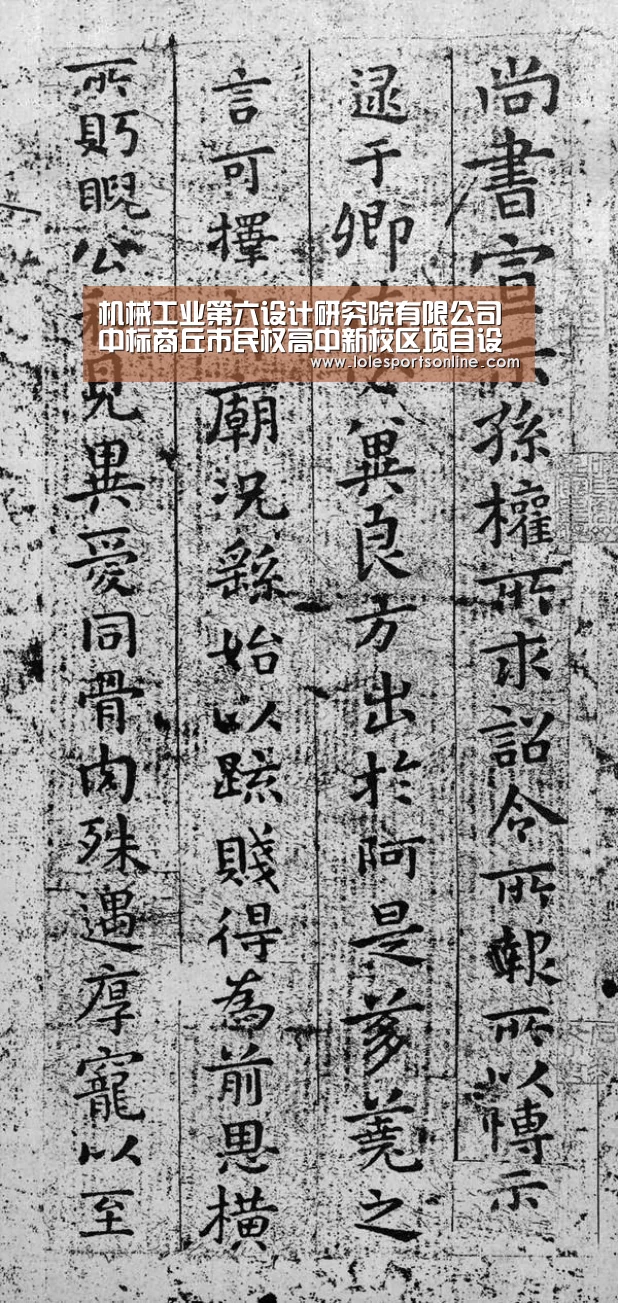 尚書宣示孫權所求詔令所報所以博示
逮于卿冀良方出於阿是芻蕘之
言可擇廟況繇始以疏賤得為前恩橫
所眄睨公見異愛同骨肉殊遇厚寵以至
机械工业第六设计研究院有限公司
中标商丘市民权高中新校区项目设
www.lolesportsonline.com